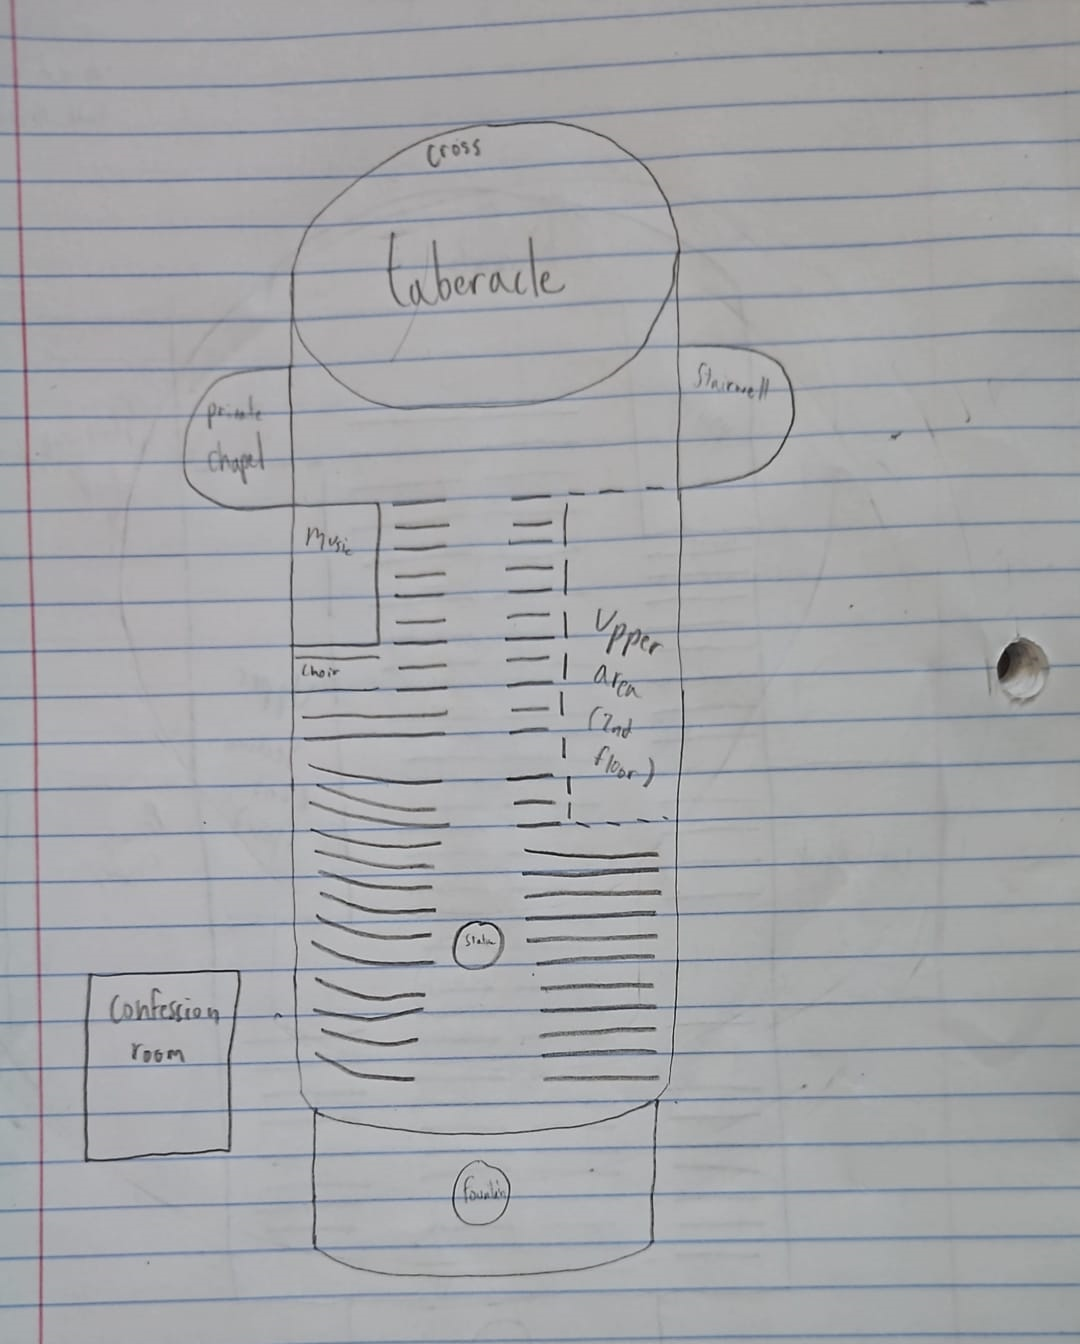 cross
taberacle
private
chapel
Stairwell
Music
Choir
Upper
area
(2nd
floor)
Statue
Confession
room
Fountain